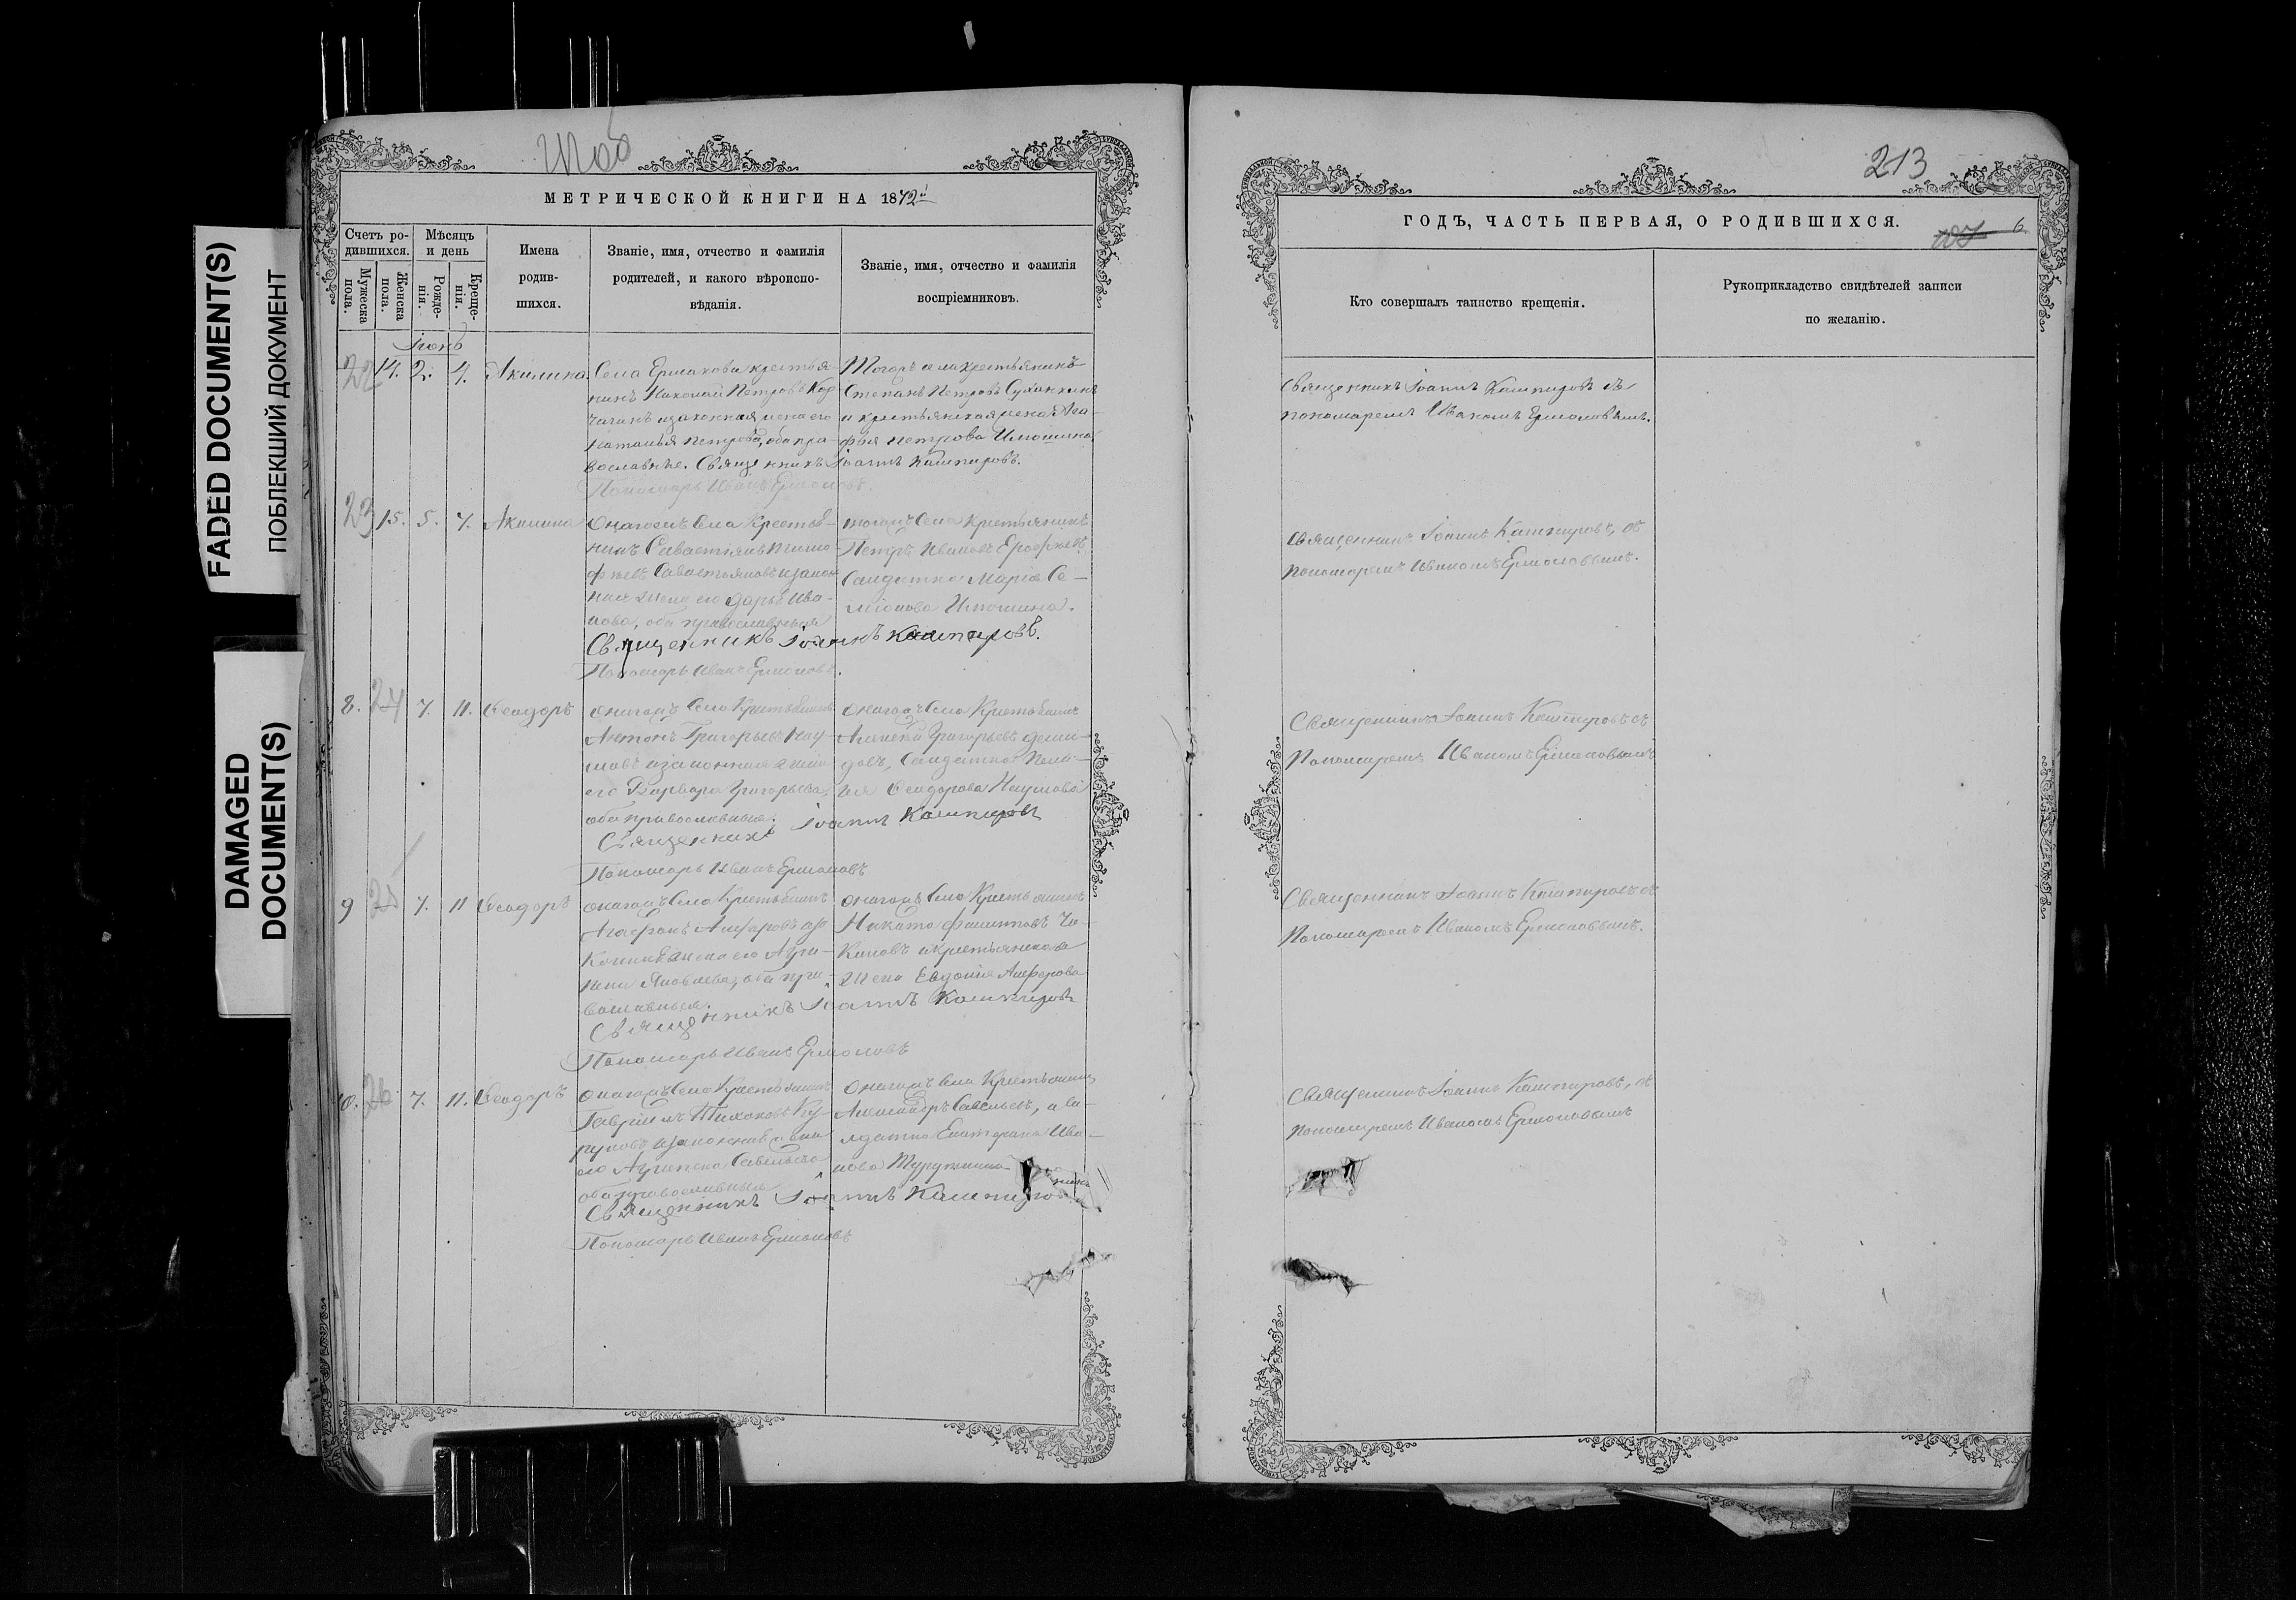 FADED DOCUMENT(S)
ПОБЛЕКШИЙ ДОКУМЕНТ
DAMAGED
DOCUMENT(S)
МЕТРИЧЕСКОЙ КНИГИ НА 1872й
Счетъ ро-
дившихся.
Мужеска
пола.
Женска
пола.
Мѣсяцъ
и день
Рожде-
нія.
Креще-
нія.
Имена
родив-
шихся.
Званіе, имя, отчество и фамилія
родителей, и какого вѣроиспо-
вѣданія.
Званіе, имя, отчество и фамилія
воспріемниковъ.
Іюнь
22 14. 2. 4. Акилина.
Села Ермакова крестья-
нинъ Николай Петровъ Кор-
чагинъ изаконная жена его
Наталья Петрова, оба пра-
вославные. Священникъ Іоаннъ Кашпировъ.
Пономарь Иванъ Ермоловъ.
Тогожъ села крестьянинъ
Степанъ Петровъ
и крестьянская жена Ага-
фья Петрова Илюшина
23 15. 5. 7. Акилина
Онагожъ Села Крестья-
нинъ Савастіянъ Тимо-
фѣевъ Савастьяновъ изакон-
ная жена его Дарья Ива-
нова, оба православныя
Священникъ Іоаннъ Кашпировъ.
Пономарь Иванъ Ермоловъ.
тогожъ Села Крестьянинъ
Петръ Ивановъ Ерофѣевъ
Салдатка Марія Се-
міонова Илюшина.
8. 24 7. 11. Ѳеодоръ
Онагожъ Села Крестьянинъ
Антонъ Григорьевъ Нау-
мовъ изаконная жена
его Варвара Григорьева,
оба православные.
Священникъ Іоаннъ Кашпировъ
Пономарь Иванъ Ермоловъ
Онагожъ Села Крестьянинъ
Алексей Григорьевъ Деми-
довъ, Салдатка Пела-
гея Ѳеодорова Наумова
9 25 7. 11 Ѳеодоръ
Онагожъ Села Крестьянинъ
Агафонъ Алферовъ
жена его Агри-
пина Яковлева, оба пра-
вославныя.
Священникъ Іоаннъ Кашпировъ
Пономарь Иванъ Ермоловъ
Онагожъ Села Крестьянинъ
Никита Филиповъ Ча-
киновъ икрестьянская
жена Евдокія Алферова
10. 26 7. 11. Ѳеодоръ
Онагожъ Села Крестьянинъ
Гавріилъ Тихоновъ
изаконная жена
его Агрипена Савельева
оба православныя
Священникъ Іоаннъ Кашпировъ
Пономарь Иванъ Ермоловъ
Онагожъ Села Крестьянинъ
Александръ Савельевъ, и Са-
лдатка Екатерина Ива-
нова
213
ГОДЪ, ЧАСТЬ ПЕРВАЯ, О РОДИВШИХСЯ.
6
Кто совершалъ таинство крещенія.
Рукоприкладство свидѣтелей записи
по желанію.
Священникъ Іоаннъ Кашпировъ съ
пономаремъ Иваномъ Ермоловымъ.
Священникъ Іоаннъ Кашпировъ, съ
пономаремъ Иваномъ Ермоловымъ.
Священникъ Іоаннъ Кашпировъ съ
Пономаремъ Иваномъ Ермоловымъ
Священникъ Іоаннъ Кашпировъ съ
Пономаремъ Иваномъ Ермоловымъ.
Священникъ Іоаннъ Кашпировъ, съ
Пономаремъ Иваномъ Ермоловымъ